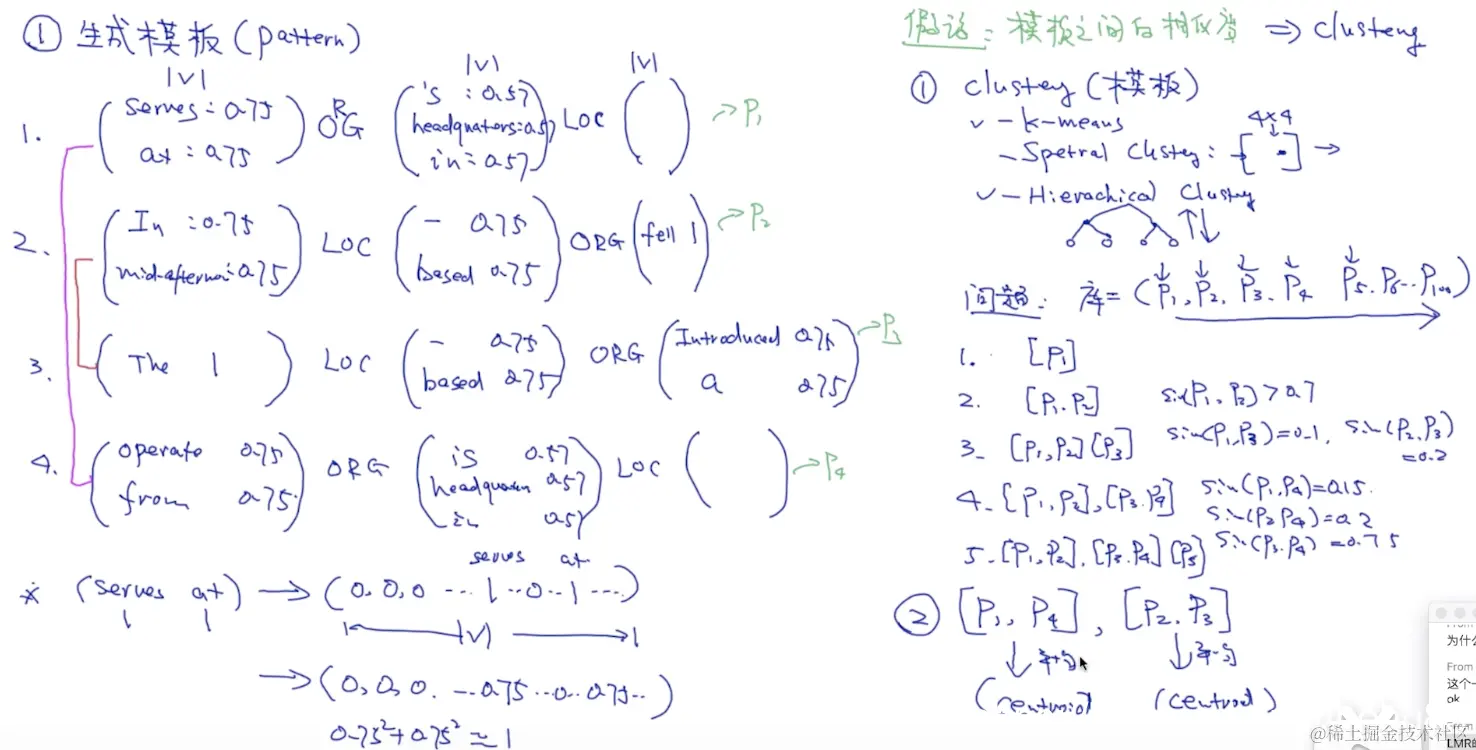 ① 生成模板(pattern)
|v| |v| |v|
1. (serves: 0.75 at: 0.75) ORG ('s: 0.57 headquaters: 0.57 in: 0.57) LOC ( ) → P1
2. (In: 0.75 mid-afternoon: 0.75) LOC (- 0.75 based 0.75) ORG (fell 1) → P2
3. (The 1) LOC (- 0.75 based 0.75) ORG (Introduced 0.75 a 0.75) → P3
4. (operate 0.75 from 0.75) ORG (is 0.57 headquarters 0.57 in 0.57) LOC ( ) → P4
serves at
* (serves at) → (0,0,0 ... 1 ..0.. 1 ....)
1 1 |v|
→ (0,0,0. ...0.75..0..0.75..)
0.75²+0.75² ≈ 1
假设: 模板之间的相似度 ⇒ clusteng
① clusteng (模板)
✓ - k-means
4x4
- Spetral Clusteng: → [ ] →
✓ - Hierachical Clusteng
问题: 库= (P1, P2, P3, P4 P5, P6...P100)
1. [P1]
2. [P1, P2] sim(P1, P2) > 0.7
3. [P1, P2] [P3] sim(P1, P3)=0.1, sim(P2, P3)=0.2
4. [P1, P2], [P3, P4] sim(P1, P4)=0.15
sim(P2 P4)=0.2
sim(P3, P4)=0.75
5. [P1, P2], [P3, P4] [P5]
② [P1, P4], [P2, P3]
↓平均 ↓平均
(centroid) (centroid)
From
为什么
From
这个一
ok
From
LMR
@稀土掘金技术社区